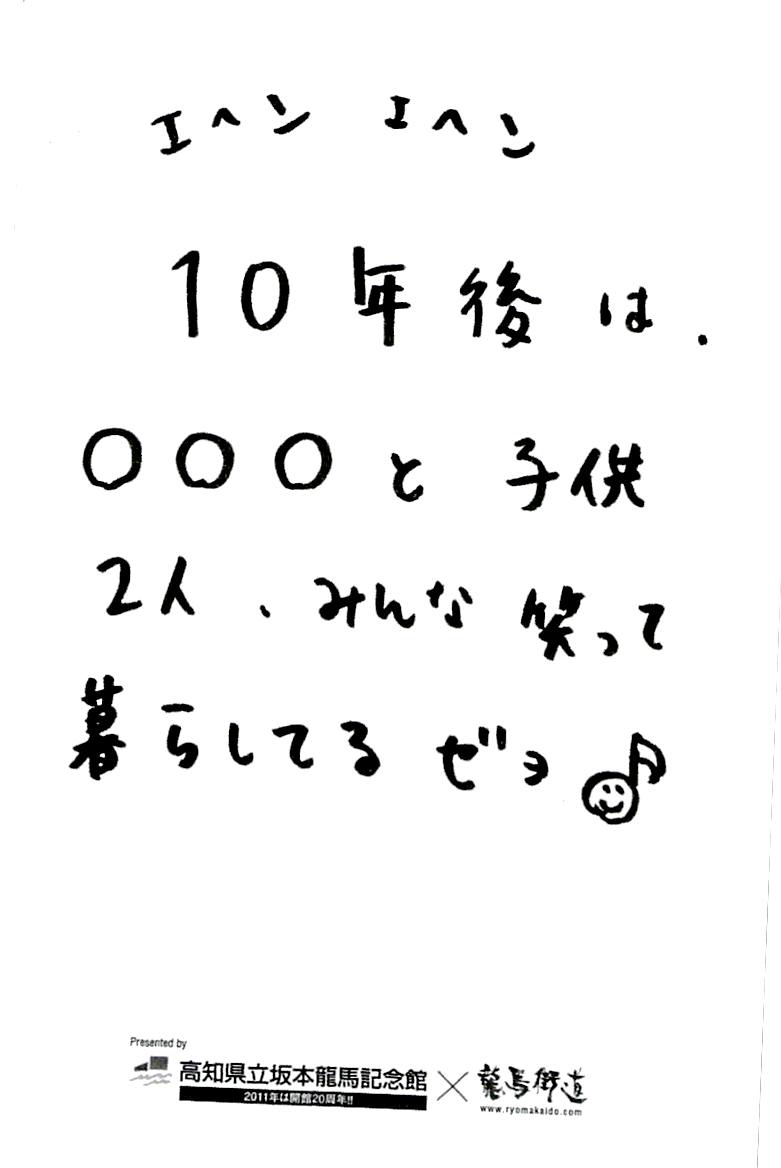 エヘン エヘン
10年後は、
〇〇〇と子供
2人、みんな笑って
暮らしてるぜヨ♪
Presented by
高知県立坂本龍馬記念館×龍馬街道
2011年は開館20周年!!
www.ryomakaido.com